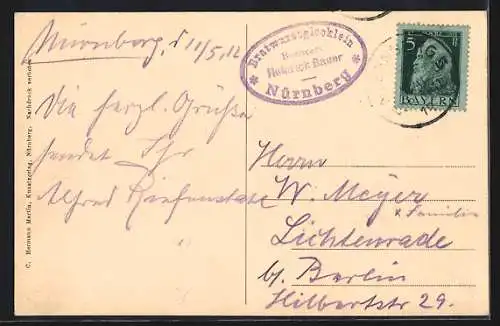 Nürnberg, d 11/5. 12
Die herzl. Grüße
sendet Ihr
Alfred
Bratwurstglöcklein
Heinrich Bauer
Nürnberg
5
BAYERN
Herrn
W. Meyer
& Familie
Lichtenrade
b/. Berlin
Hilbertstr 29.
C. Hermann Martin, Kunstverlag, Nürnberg. Nachdruck verboten